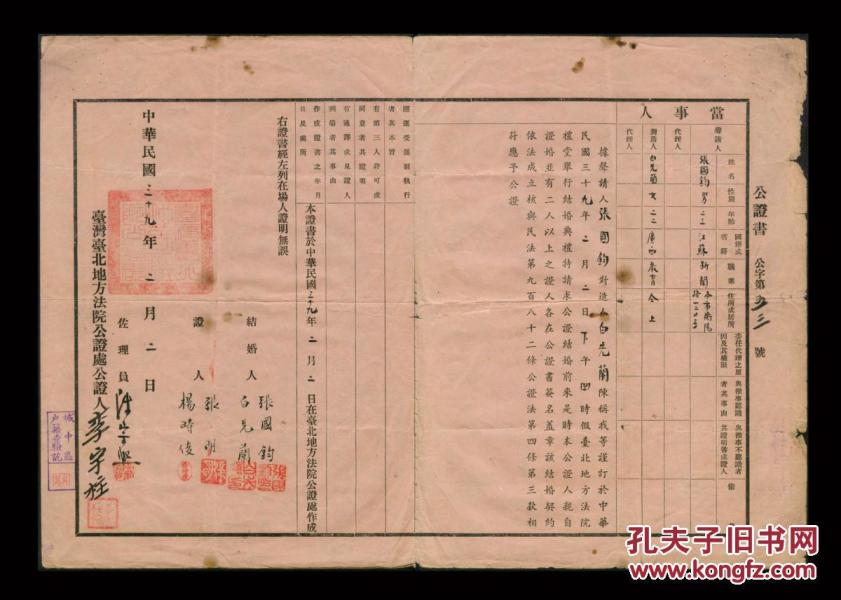 公證書 公字第五三號
當事人
姓名 性別 年齡 籍貫 職業 住所或居所
聲請人 張國鈞 男 二三 江蘇 新聞
代理人
對造人 白先蘭 女 二二 廣西 教育 仝上
代理人
據聲請人張國鈞對造人白先蘭陳稱我等謹訂於中華
民國三十九年二月二日下午四時假臺北地方法院
禮堂舉行結婚典禮特請求公證結婚前來是時本公證人親自
證婚並有二人以上之證人各在公證書簽名蓋章該結婚契約
依法成立核與民法第九百八十二條公證法第四條第三款相
符應予公證
應逕受強制執行者其本旨
有第三人許可或同意者其證明
有通譯或見證人到場者其事由
作成證書之年月日及處所
本證書於中華民國三十九年二月二日在臺北地方法院公證處作成
右證書經左列在場人證明無誤
結婚人 張國鈞
白先蘭
證人 張明
楊時俊
中華民國三十九年二月二日
佐理員
臺灣臺北地方法院公證處公證人 李宇柱
城中區
孔夫子旧书网
www.kongfz.com